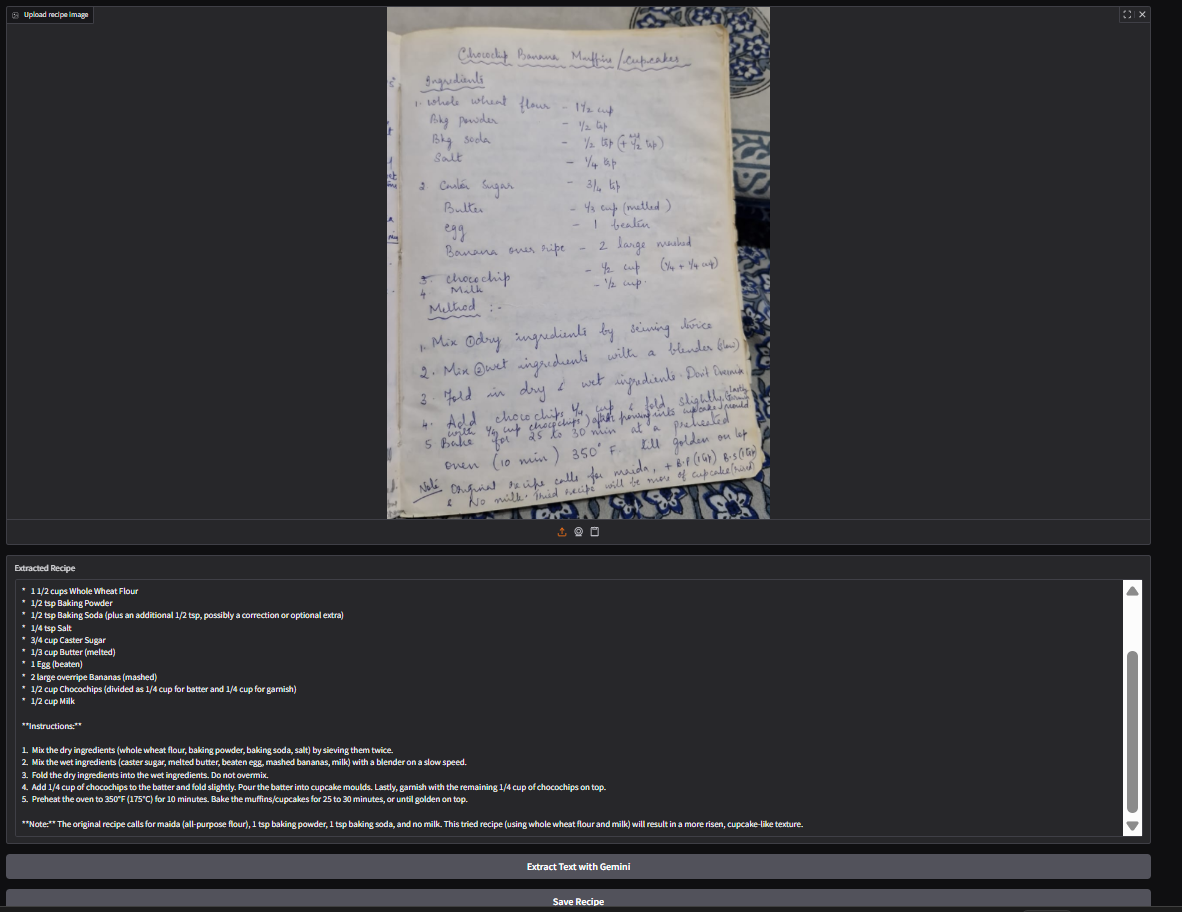 Upload recipe image
Chocochip Banana Muffins / cupcakes
Ingredients
1. Whole wheat flour - 1 1/2 cup
Bkg powder - 1/2 tsp
Bkg soda - 1/2 tsp (+ 1/2 tsp)
Salt - 1/4 tsp
2 Caster Sugar - 3/4 tsp
Butter - 1/3 cup (melted)
egg - 1 beaten
Banana over ripe - 2 large mashed
3. chocochip - 1/2 cup (1/4 + 1/4 cup)
4 Milk - 1/2 cup.
Method :-
1. Mix ① dry ingredients by seiving twice
2. Mix ② wet ingredients with a blender (slow)
3. Fold in dry & wet ingredients. Don't Overmix
4. Add chocochips 1/4 cup & fold slightly. lastly
with 1/4 cup chocochips) after pouring into cupcake mould
5 Bake for 25 to 30 min at a preheated
oven (10 min) 350° F till golden on top
Note Original recipe calls for maida, + B.P (1 tsp) B.S (1 tsp)
& No milk. Tried recipe will be more of cupcake
Extracted Recipe
* 1 1/2 cups Whole Wheat Flour
* 1/2 tsp Baking Powder
* 1/2 tsp Baking Soda (plus an additional 1/2 tsp, possibly a correction or optional extra)
* 1/4 tsp Salt
* 3/4 cup Caster Sugar
* 1/3 cup Butter (melted)
* 1 Egg (beaten)
* 2 large overripe Bananas (mashed)
* 1/2 cup Chocochips (divided as 1/4 cup for batter and 1/4 cup for garnish)
* 1/2 cup Milk
**Instructions:**
1. Mix the dry ingredients (whole wheat flour, baking powder, baking soda, salt) by sieving them twice.
2. Mix the wet ingredients (caster sugar, melted butter, beaten egg, mashed bananas, milk) with a blender on a slow speed.
3. Fold the dry ingredients into the wet ingredients. Do not overmix.
4. Add 1/4 cup of chocochips to the batter and fold slightly. Pour the batter into cupcake moulds. Lastly, garnish with the remaining 1/4 cup of chocochips on top.
5. Preheat the oven to 350°F (175°C) for 10 minutes. Bake the muffins/cupcakes for 25 to 30 minutes, or until golden on top.
**Note:** The original recipe calls for maida (all-purpose flour), 1 tsp baking powder, 1 tsp baking soda, and no milk. This tried recipe (using whole wheat flour and milk) will result in a more risen, cupcake-like texture.
Extract Text with Gemini
Save Recipe